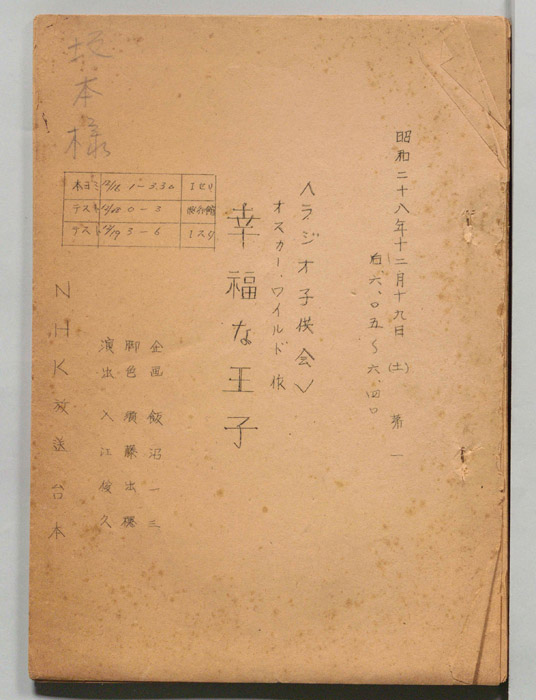 昭和二十八年十二月十九日(土)第一
后六、〇五~六、四〇
<ラジオ子供会>
オスカー・ワイルド 作
幸福な王子
企画 飯沼一三
脚色 須藤出穂
演出 入江俊久
坂本様
本ヨミ 12/16 1-3.30
テスト 12/18 0-3
テスト 12/19 3-6
NHK放送台本